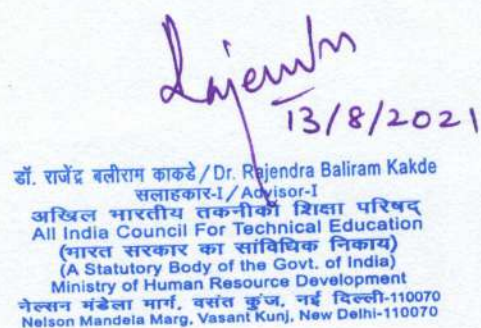 Rajendra
13/8/2021
डॉ. राजेंद्र बलीराम काकडे/Dr. Rajendra Baliram Kakde
सलाहकार-I/Advisor-I
अखिल भारतीय तकनीकी शिक्षा परिषद्
All India Council For Technical Education
(भारत सरकार का सांविधिक निकाय)
(A Statutory Body of the Govt. of India)
Ministry of Human Resource Development
नेल्सन मंडेला मार्ग, वसंत कुंज, नई दिल्ली-110070
Nelson Mandela Marg, Vasant Kunj, New Delhi-110070